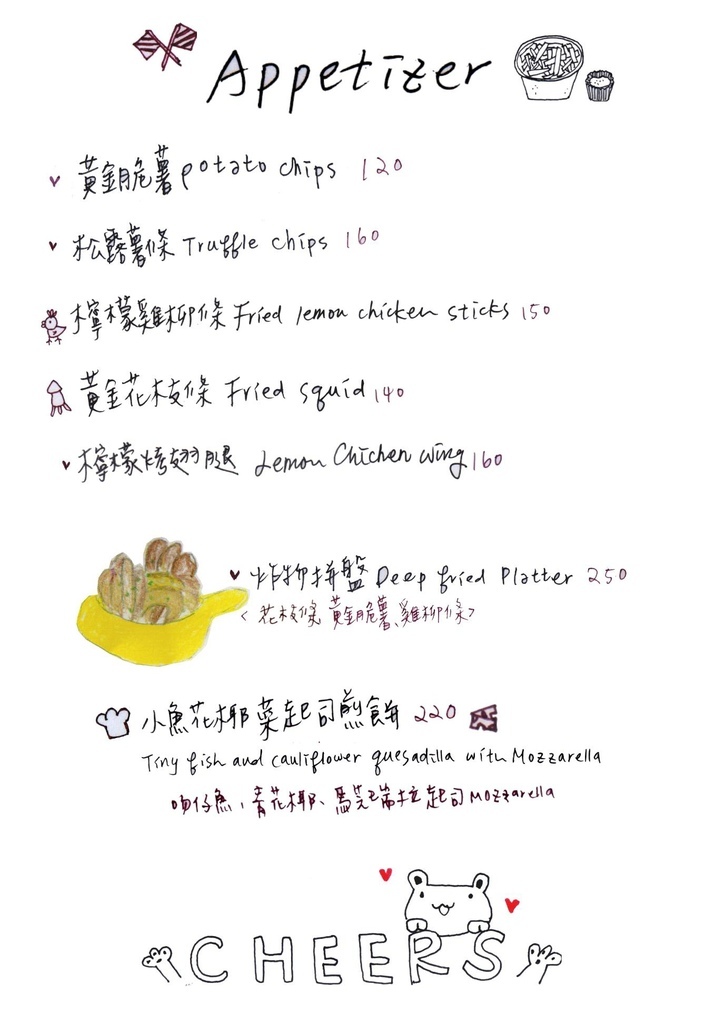 Appetizer
黃金脆薯 potato chips 120
松露薯條 Truffle chips 160
檸檬雞柳條 Fried lemon chicken sticks 150
黃金花枝條 Fried squid 140
檸檬烤翅腿 Lemon Chicken wing 160
炸物拼盤 Deep fried Platter 250
<花枝條 黃金脆薯、雞柳條>
小魚花椰菜起司煎餅 220
Tiny fish and cauliflower quesadilla with Mozzarella
吻仔魚、青花椰、馬芝瑞拉起司 Mozzarella
CHEERS